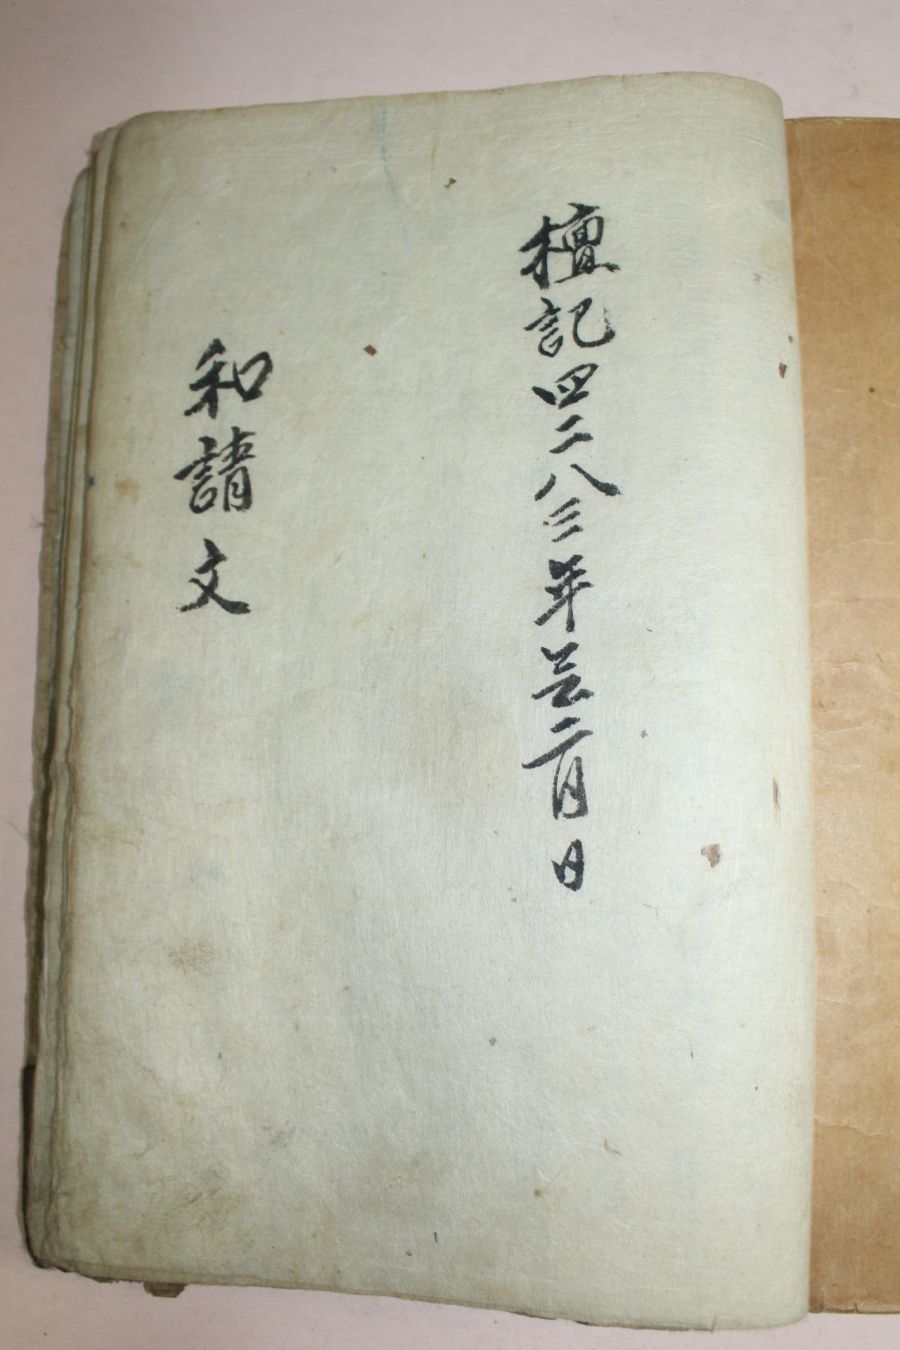 檀記四二八三年

二月日
和請文